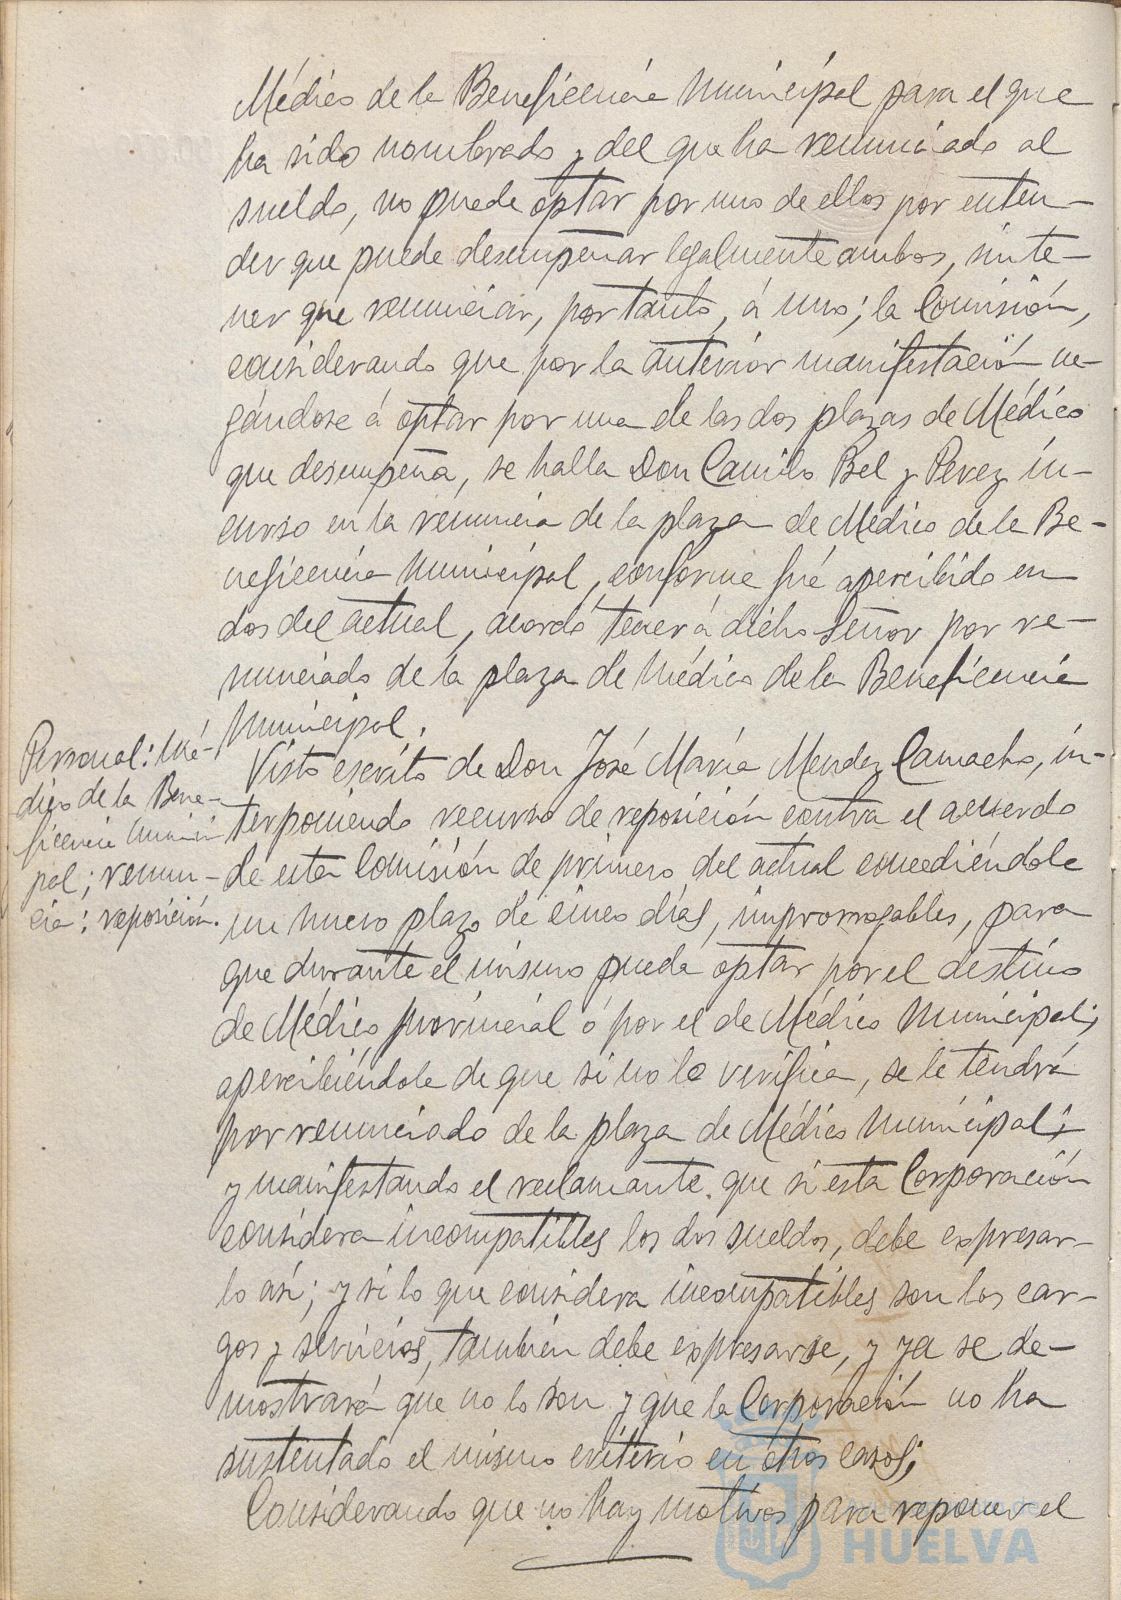 Médico de la Beneficencia Municipal para el que
ha sido nombrado y del que ha renunciado al
sueldo, no puede optar por uno de ellos por enten-
der que puede desempeñar legalmente ambos, sin te-
ner que renunciar, por tanto, á uno; la Comisión,
considerando que por la anterior manifestación ne-
gándose á optar por una de las dos plazas de Médico
que desempeña, se halla Don Camilo Bel y Perez in-
curso en la renuncia de la plaza de Médico de la Be-
neficencia Municipal, conforme fué apercibido en
dos del actual, acordó tener á dicho Señor por re-
nunciado de la plaza de Médico de la Beneficencia
Municipal.
Personal: Mé-
dico de la Bene-
ficencia Munici
pal; renun-
cia: reposición.
Visto escrito de Don José María Mendez Camacho, in-
terponiendo recurso de reposición contra el acuerdo
de esta Comisión de primero del actual concediéndole
un nuevo plazo de cinco días, improrrogables, para
que durante el mismo pueda optar por el destino
de Médico provincial ó por el de Médico Municipal;
apercibiéndole de que si no lo verifica, se le tendrá
por renunciado de la plaza de Médico Municipal;
y manifestando el reclamante que si esta Corporación
considera incompatibles los dos sueldos, debe expresar-
lo así; y si lo que considera incompatibles son los car-
gos y servicios, también debe expresarse, y ya se de-
mostrará que no lo son y que la Corporación no ha
sustentado el mismo criterio en otros casos;
Considerando que no hay motivos para reponer el
HUELVA